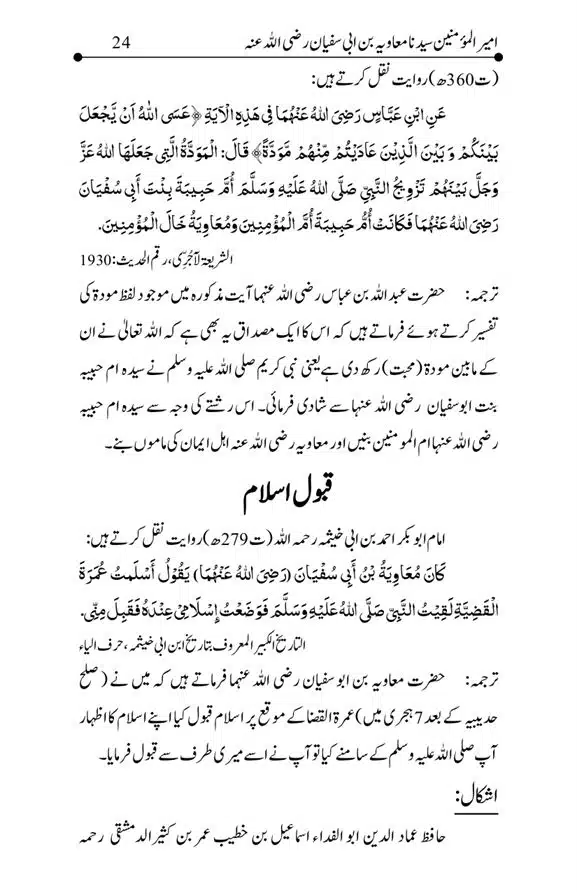 امیر المؤمنین سیدنا معاویہ بن ابی سفیان رضی اللہ عنہ 24
(ت360ھ) روایت نقل کرتے ہیں:
عَنِ ابْنِ عَبَّاسٍ رَضِیَ اللهُ عَنْهُمَا فِیْ هٰذِهِ الْاٰیَةِ ﴿عَسَی اللهُ اَنْ یَّجْعَلَ
بَیْنَکُمْ وَ بَیْنَ الَّذِیْنَ عَادَیْتُمْ مِّنْهُمْ مَّوَدَّةً﴾ قَالَ: الْمَوَدَّةُ الَّتِیْ جَعَلَهَا اللهُ عَزَّ
وَجَلَّ بَیْنَهُمْ تَزْوِیْجُ النَّبِیِّ صَلَّی اللهُ عَلَیْهِ وَسَلَّمَ أُمَّ حَبِیْبَةَ بِنْتَ أَبِیْ سُفْیَانَ
رَضِیَ اللهُ عَنْهُمَا فَکَانَتْ أُمُّ حَبِیْبَةَ أُمَّ الْمُؤْمِنِیْنَ وَمُعَاوِیَةُ خَالَ الْمُؤْمِنِیْنَ.
الشریعۃ لآجُرِّی، رقم الحدیث: 1930
ترجمہ: حضرت عبد اللہ بن عباس رضی اللہ عنہما آیت مذکورہ میں موجود لفظ مودۃ کی
تفسیر کرتے ہوئے فرماتے ہیں کہ اس کا ایک مصداق یہ بھی ہے کہ اللہ تعالیٰ نے ان
کے مابین مودۃ (محبت) رکھ دی ہے یعنی نبی کریم صلی اللہ علیہ وسلم نے سیدہ ام حبیبہ
بنت ابوسفیان رضی اللہ عنہا سے شادی فرمائی۔ اس رشتے کی وجہ سے سیدہ ام حبیبہ
رضی اللہ عنہا ام المومنین بنیں اور معاویہ رضی اللہ عنہ اہل ایمان کی ماموں بنے۔
قبول اسلام
امام ابو بکر احمد بن ابی خیثمہ رحمہ اللہ (ت279ھ) روایت نقل کرتے ہیں:
کَانَ مُعَاوِیَةُ بْنُ أَبِیْ سُفْیَانَ (رَضِیَ اللهُ عَنْهُمَا) یَقُوْلُ أَسْلَمْتُ عُمْرَةَ
الْقَضِیَّةِ لَقِیْتُ النَّبِیَّ صَلَّی اللهُ عَلَیْهِ وَسَلَّمَ فَوَضَعْتُ إِسْلَامِیْ عِنْدَهُ فَقَبِلَ مِنِّیْ.
التاریخ الکبیر المعروف بتاریخ ابن ابی خیثمہ، حرف الیاء
ترجمہ: حضرت معاویہ بن ابو سفیان رضی اللہ عنہما فرماتے ہیں کہ میں نے (صلح
حدیبیہ کے بعد 7 ہجری میں) عمرۃ القضا کے موقع پر اسلام قبول کیا اپنے اسلام کا اظہار
آپ صلی اللہ علیہ وسلم کے سامنے کیا تو آپ نے اسے میری طرف سے قبول فرمایا۔
اشکال:
حافظ عماد الدین ابو الفداء اسماعیل بن خطیب عمر بن کثیر الدمشقی رحمہ